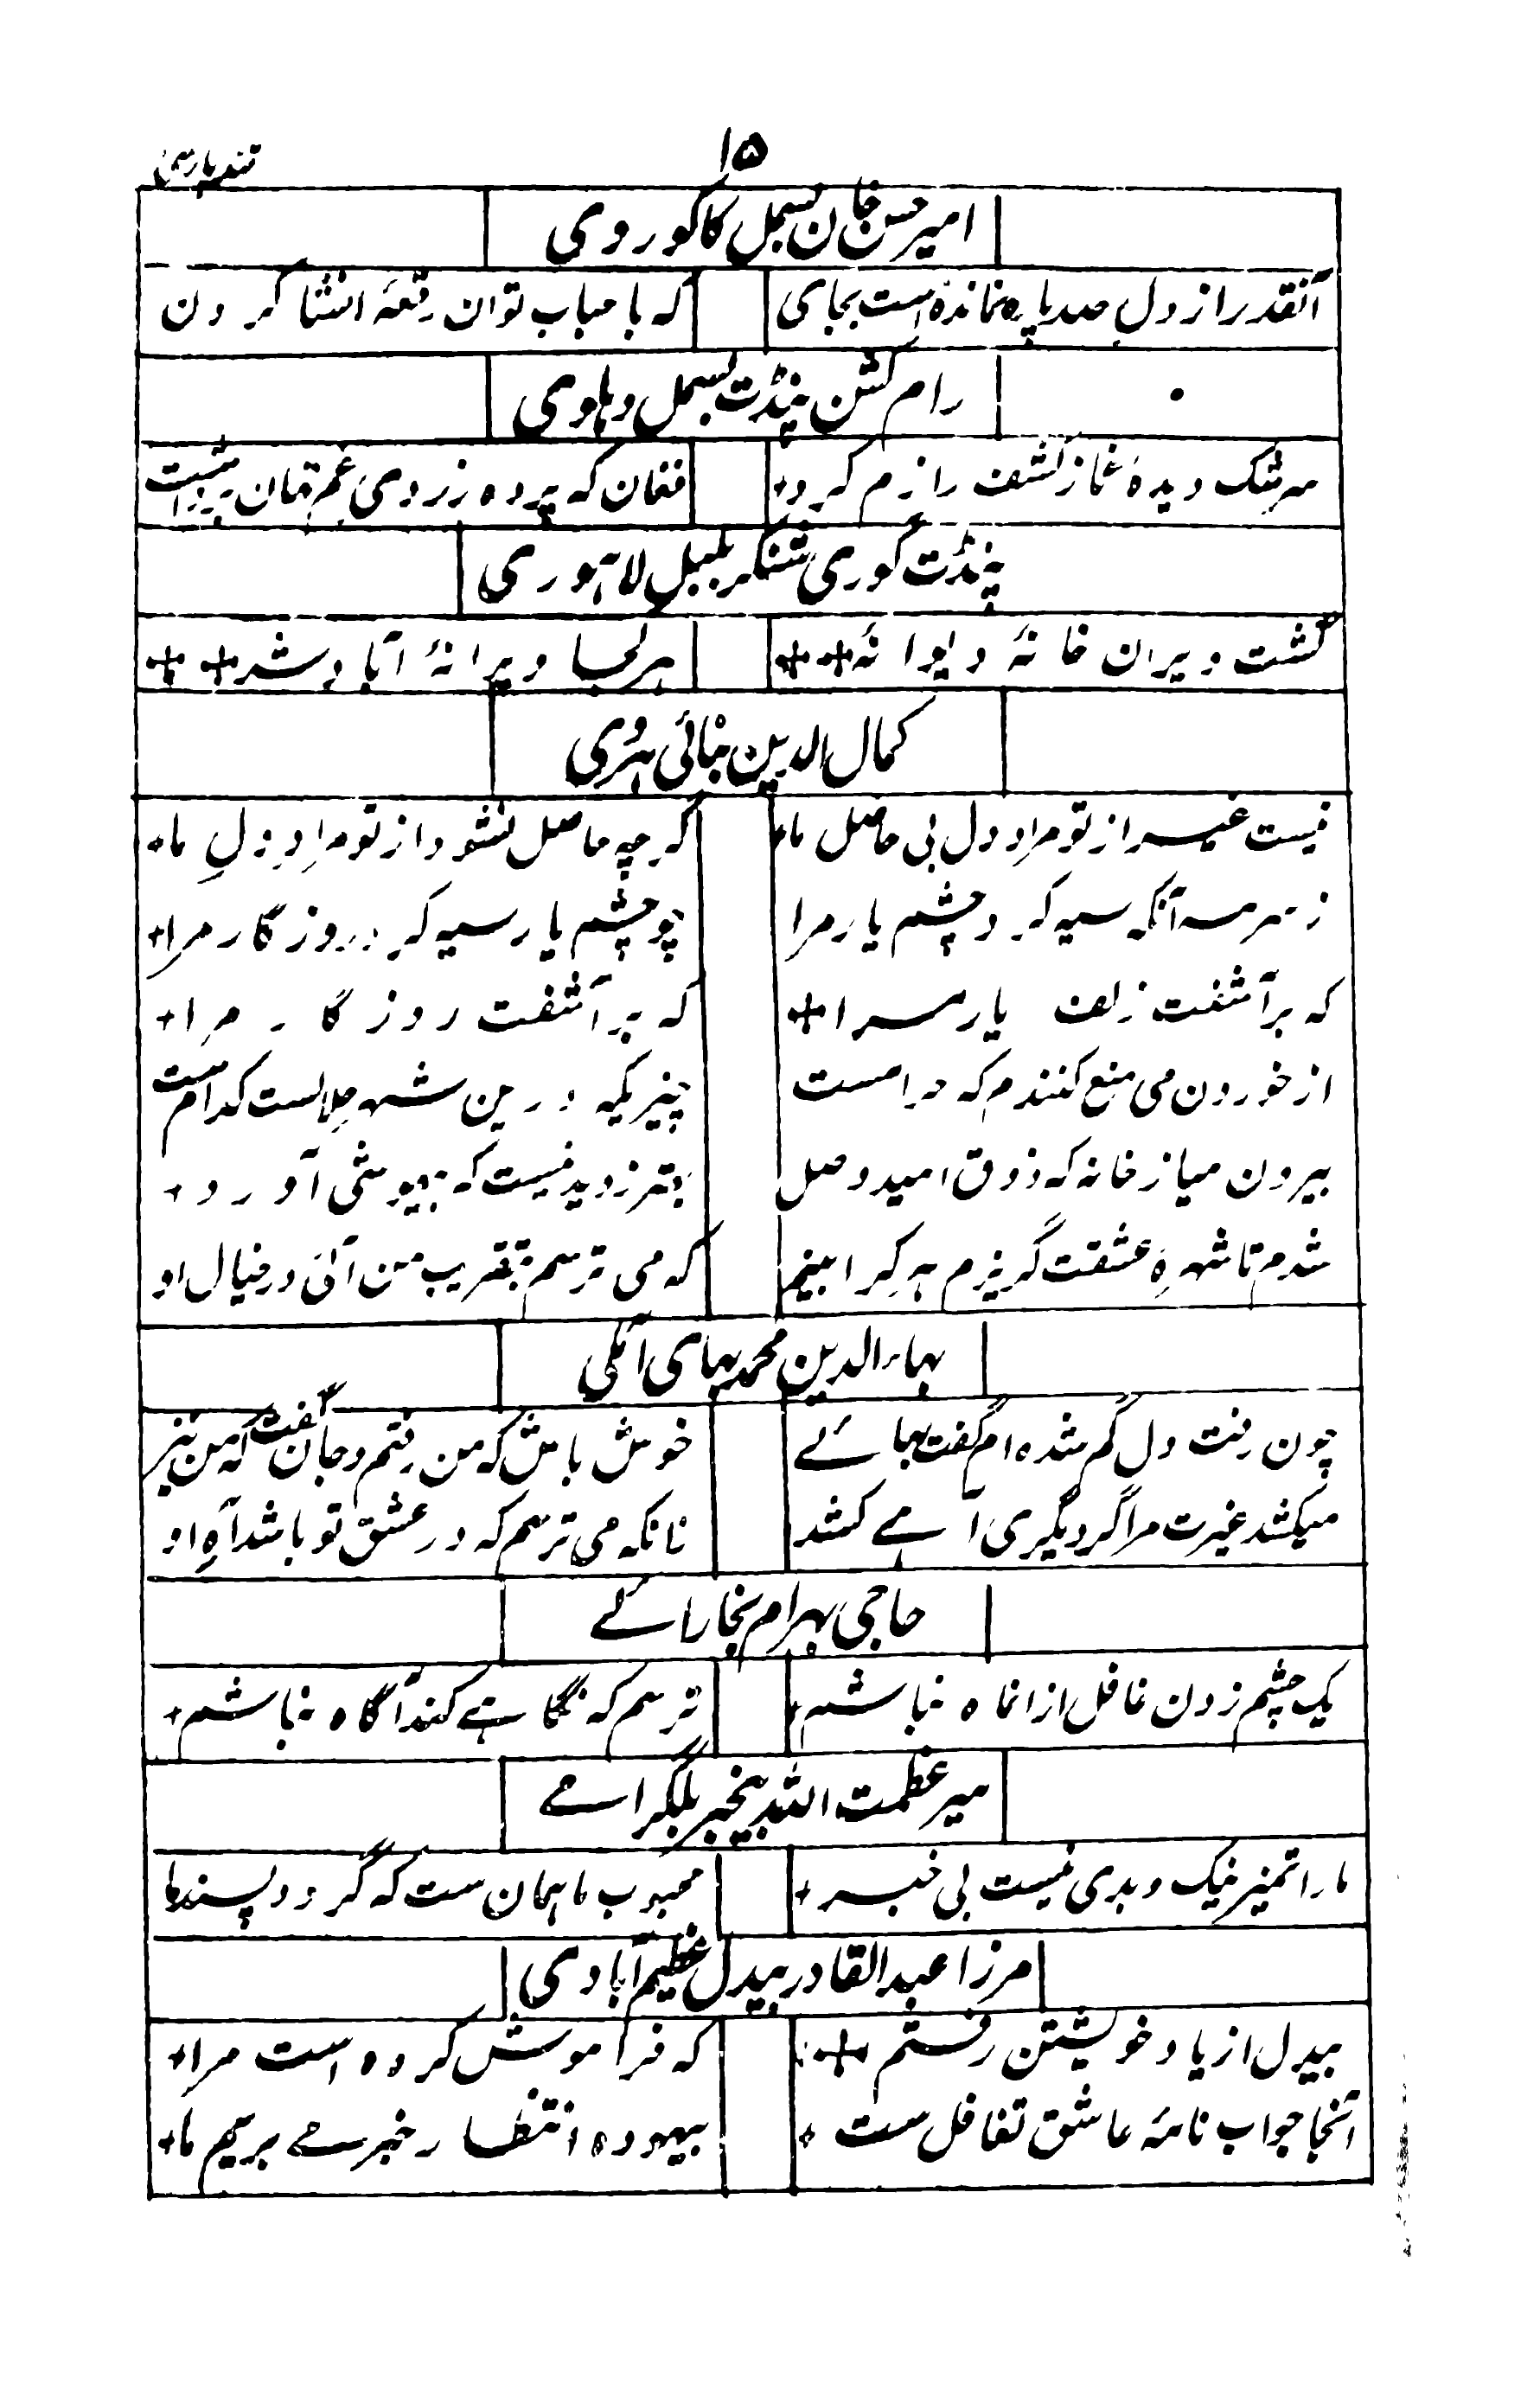 ۱۵
قند پارسی
امیر حسن خان بسمل کاکوروی
آنقدر از دل صد پاره نمانده است بجای که باحباب توان رقعهٔ انشا کردن
رام کشن پنڈت بسمل دہلوی
سرشک دیدهٔ غماز کشف رازم کرد فغان که پرده ز روی غم نهان برداشت
پنڈت گوری شنکر بلبل لاہوری
گشت ویران خانهٔ دیوانهٔ هر کجا ویرانهٔ آباد شد
کمال الدین بنائی ہروی
نیست غیر از تو مراد دل بی حاصل ما گرچه حاصل نشود از تو مرادِ دلِ ما
ز سرمه آنکه سیه کرد چشم یار مرا چو چشم یار سیه کرد روزگار مرا
که برآشفت زلف یار مرا که برآشفت روزگار مرا
از خوردن می منع کنندم که حرامست چیزیکه درین شهر حلالست کدام است
بیرون میا ز خانه که ذوق امید وصل بهتر ز دیدنیست که بیهوشی آورد
شدم تا شهرهٔ عشقت گریزم هر کرا بینم که می ترسم بتقریب من آئی در خیال او
بہاء الدین محمد بہای آملی
چون رفت دل گم شده ام گفت بهائے خوش باش که من رفتم و جان گفت که من نیز
میکشد غیرت مرا گر دیگری آہے کشد زانکه می ترسم که در عشق تو باشد آهِ او
حاجی بہرام بخارائے
یک چشم زدن غافل ازان ماه نباشم ترسم که نگاہے کند آگاه نباشم
میر عظمت اللہ بیخبر بلگرامے
ما را تمیز نیک و بدی نیست بی خبر محبوب ما همان ست که گردد پسند ما
مرزا عبدالقادر بیدل عظیم آبادی
بیدل از یاد خویشتن رفتم که فراموش کرده است مرا
آنجا جواب نامهٔ عاشق تغافل ست بیهوده انتظار خبر مے بریم ما